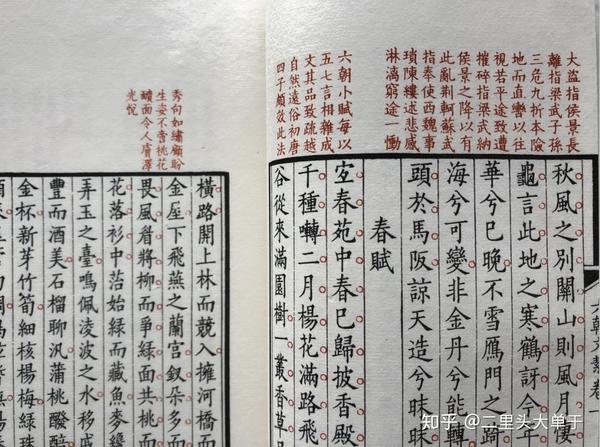 大盜指侯景長
離指梁武子孫
三危九折本險
地而直轡以往
視若平途致遭
摧碎指梁武納
侯景之降以有
此亂荆軻蘇武
指奉使西魏事
瑣陳縷述悲感
淋漓窮途一慟
六朝小賦每以
五七言相雜成
文其品致疏越
自然遠俗初唐
四子頗效此法
六朝文絜卷一
秋風之別關山則風月悽
龜言此地之寒鶴訝今
華兮已晚不雪雁門之踦
海兮可變非金丹兮能轉
頭於馬阪諒天造兮昧昧
春賦
宜春苑中春已歸披香殿
千種囀二月楊花滿路飛
谷從來滿園樹一叢香草
秀句如繡顧盼
生姿不啻桃花
靧面令人膚澤
光悅
橫路開上林而競入擁河橋而
金屋下飛燕之蘭宮釵朵多而
畏風眉將柳而爭綠面共桃而
花落衫中苔始綠而藏魚麥纔
弄玉之臺鳴佩凌波之水移戚
豐而酒美石榴聊汎蒲桃醱醅
金杯新芽竹筍細核楊梅綠珠
知乎 @二里头大单于